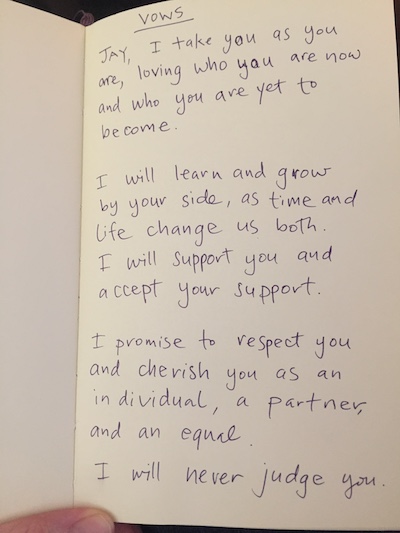 VOWS
JAY, I take you as you
are, loving who you are now
and who you are yet to
become.
I will learn and grow
by your side, as time and
life change us both.
I will support you and
accept your support.
I promise to respect you
and cherish you as an
individual, a partner,
and an equal.
I will never judge you.